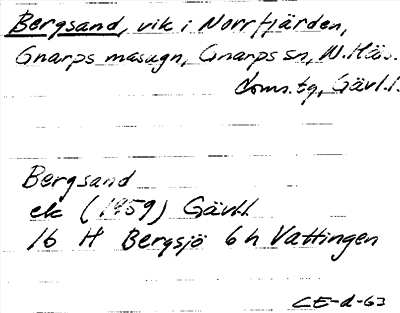 Bergsand, vik i Norrfjärden,
Gnarps masugn, Gnarps sn, N. Häl.
doms.tg, Gävl.l.
Bergsand
ek (1959) Gävl.l.
16 H Bergsjö 6 h Vattingen
CE-d-63